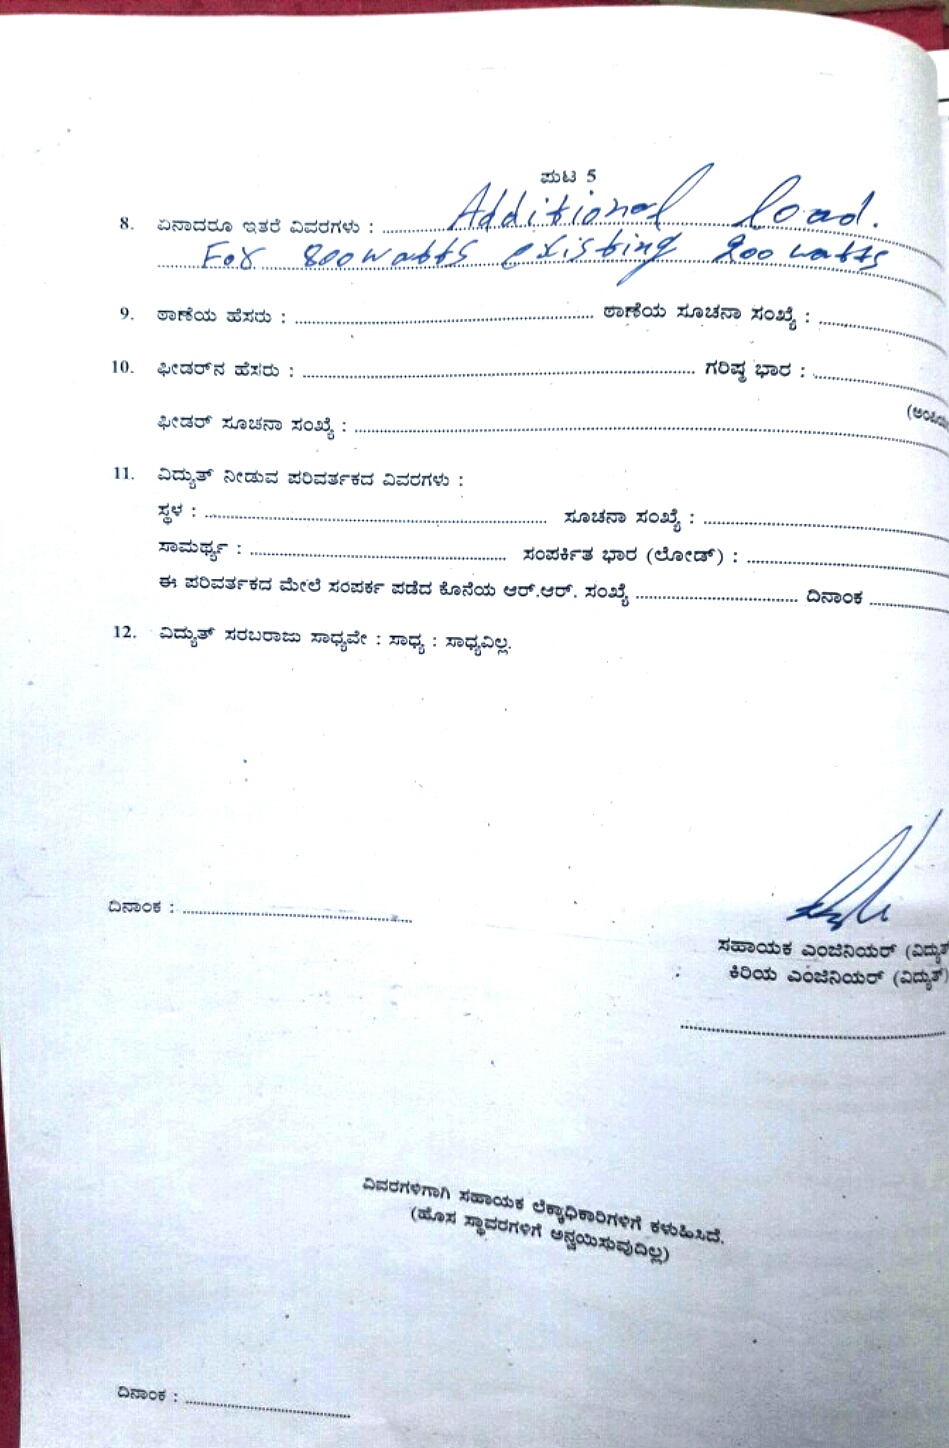 ಪುಟ 5
8. ಏನಾದರೂ ಇತರೆ ವಿವರಗಳು : Additional load.
For 800 watts existing 200 watts
9. ಠಾಣೆಯ ಹೆಸರು : ........ ಠಾಣೆಯ ಸೂಚನಾ ಸಂಖ್ಯೆ : ........
10. ಫೀಡರ್‌ನ ಹೆಸರು : ........ ಗರಿಷ್ಠ ಭಾರ : ........
ಫೀಡರ್ ಸೂಚನಾ ಸಂಖ್ಯೆ : ........
11. ವಿದ್ಯುತ್ ನೀಡುವ ಪರಿವರ್ತಕದ ವಿವರಗಳು :
ಸ್ಥಳ : ........ ಸೂಚನಾ ಸಂಖ್ಯೆ : ........
ಸಾಮರ್ಥ್ಯ : ........ ಸಂಪರ್ಕಿತ ಭಾರ (ಲೋಡ್) : ........
ಈ ಪರಿವರ್ತಕದ ಮೇಲೆ ಸಂಪರ್ಕ ಪಡೆದ ಕೊನೆಯ ಆರ್.ಆರ್. ಸಂಖ್ಯೆ ........ ದಿನಾಂಕ ........
12. ವಿದ್ಯುತ್ ಸರಬರಾಜು ಸಾಧ್ಯವೇ : ಸಾಧ್ಯ : ಸಾಧ್ಯವಿಲ್ಲ.
ದಿನಾಂಕ : ........
ಸಹಾಯಕ ಎಂಜಿನಿಯರ್ (ವಿದ್ಯುತ್
ಕಿರಿಯ ಎಂಜಿನಿಯರ್ (ವಿದ್ಯುತ್)
ವಿವರಗಳಿಗಾಗಿ ಸಹಾಯಕ ಲೆಕ್ಕಾಧಿಕಾರಿಗಳಿಗೆ ಕಳುಹಿಸಿದೆ.
(ಹೊಸ ಸ್ಥಾವರಗಳಿಗೆ ಅನ್ವಯಿಸುವುದಿಲ್ಲ)
ದಿನಾಂಕ : ........